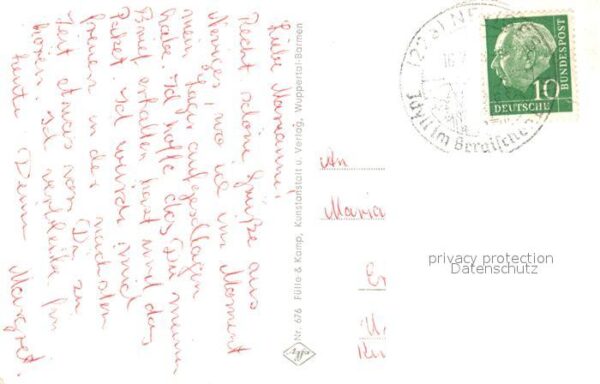 Liebe Marianne!
Recht schöne Grüße aus
Nevices, wo ich im Moment
mein Lager aufgeschlagen
habe. Ich hoffe das Du meinen
Brief erhalten hast und das
Paket. Ich würde mich
freuen in der nächsten
Zeit etwas von Dir zu
hören. Ich verbleibe für
heute Deine Margret.
Nr. 676 Fülle & Kamp, Kunstanstalt u. Verlag, Wuppertal-Barmen
An
Maria
privacy protection
Datenschutz
im Bergischen
10
DEUTSCHE
BUNDESPOST